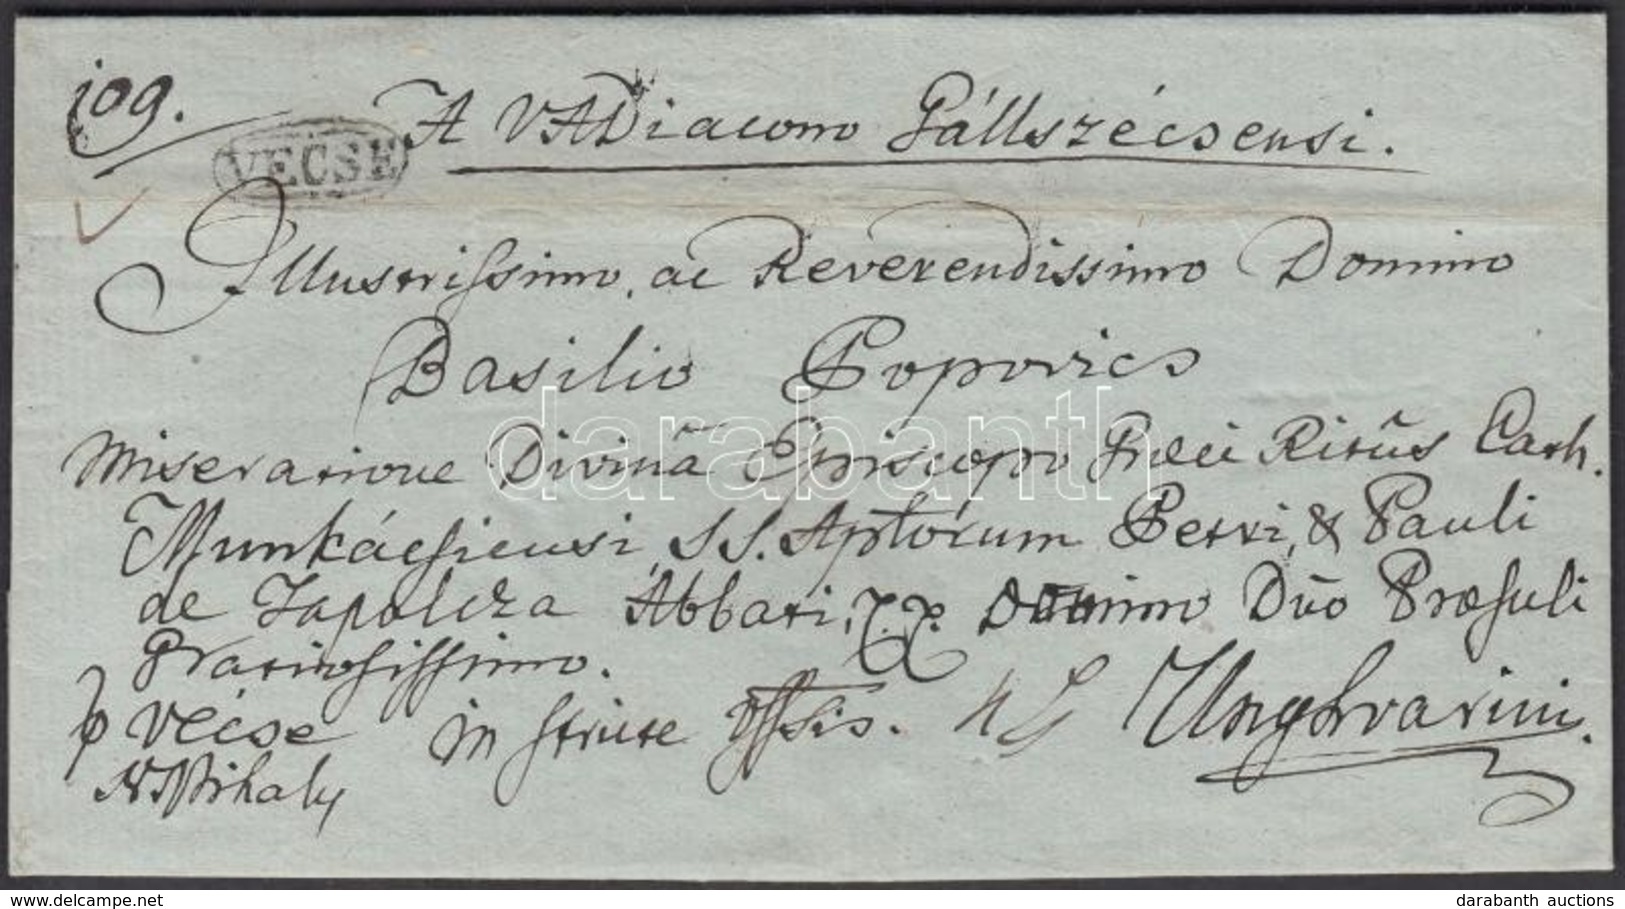 109.
A VADiacono Gállszécsensi.
VÉCSE
Illustrissimo, ac Reverendissimo Domino
Basilio Popovics
Miseratione Divina Episcopo Graeci Ritûs Cath.
Munkácsiensi, SS. Aptórum Petri, & Pauli
de Tapolcza Abbati, Domino Dño Praesuli
Gratiosissimo.
p Vécse in stricte Offsis. Unghvarini.
N Mihaly
darabanth
delcampe.net
darabanth auctions